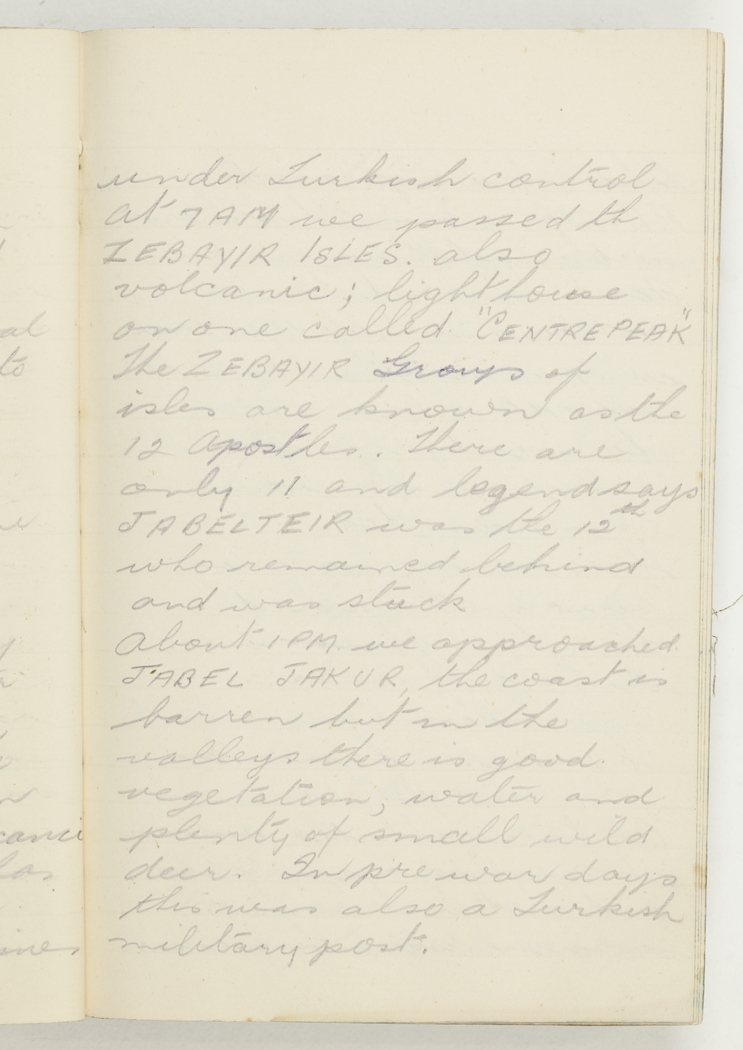 under Turkish control
at 7AM we passed th
ZEBAYIR ISLES. also
volcanic; lighthouse
on one called "CENTREPEAK"
The ZEBAYIR Groups of
isles are known as the
12 Apostles. There are
only 11 and legend says
JABELTEIR was the 12th
who remained behind
and was stuck
About 1PM we approached
JABEL JAKUR, the coast is
barren but in the
valleys there is good
vegetation, water and
plenty of small wild
deer. In pre war days
this was also a Turkish
military post.
al
to
cani